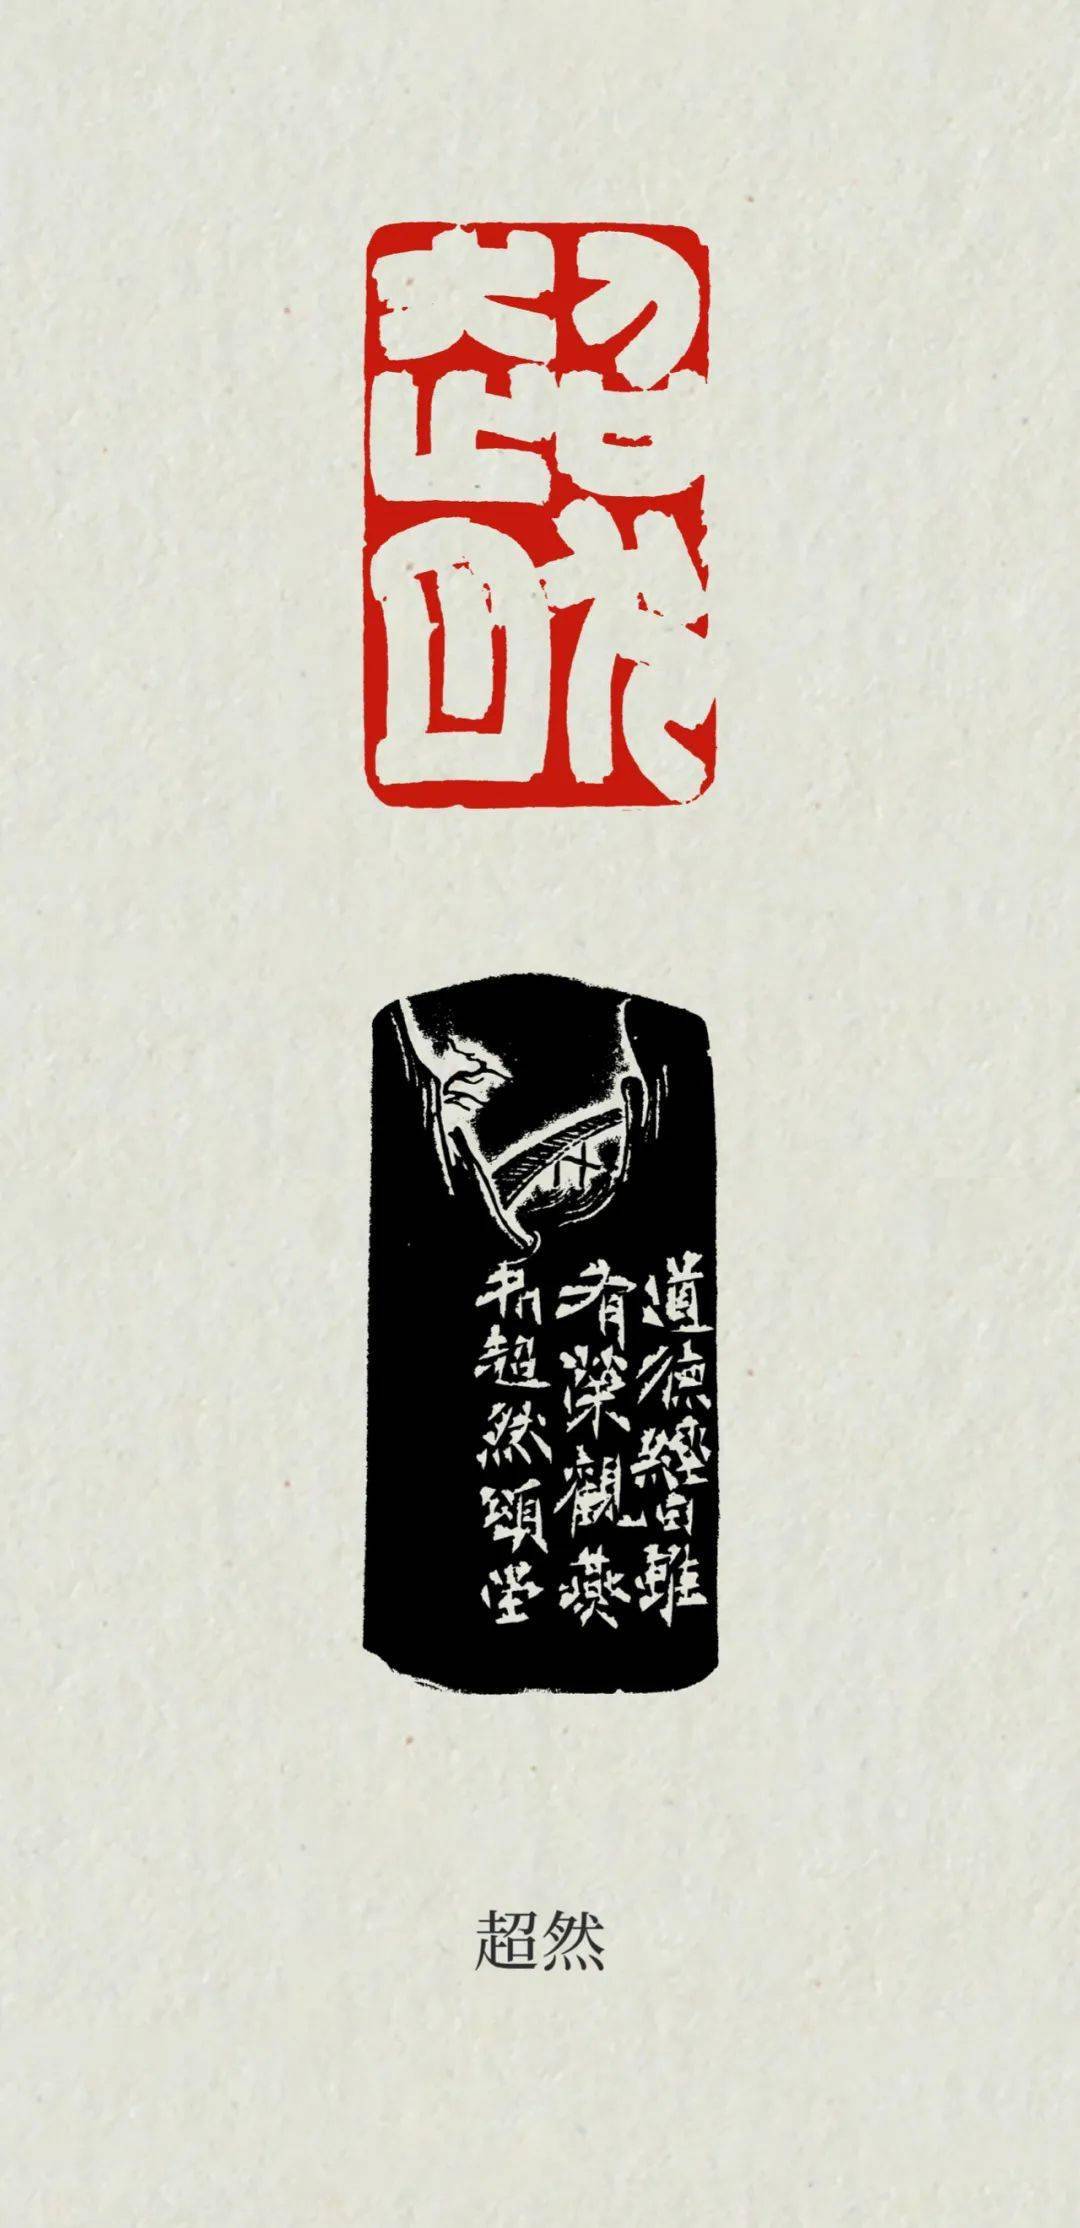 超然
道德經曰雖
有榮觀燕
處超然頌堂
超然